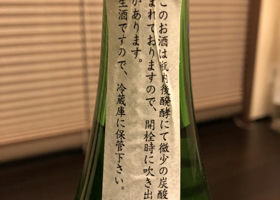 このお酒は瓶内後醗酵にて微少の炭酸
まれておりますので、開栓時に吹き出
があります。
生酒ですので、冷蔵庫に保管下さい。